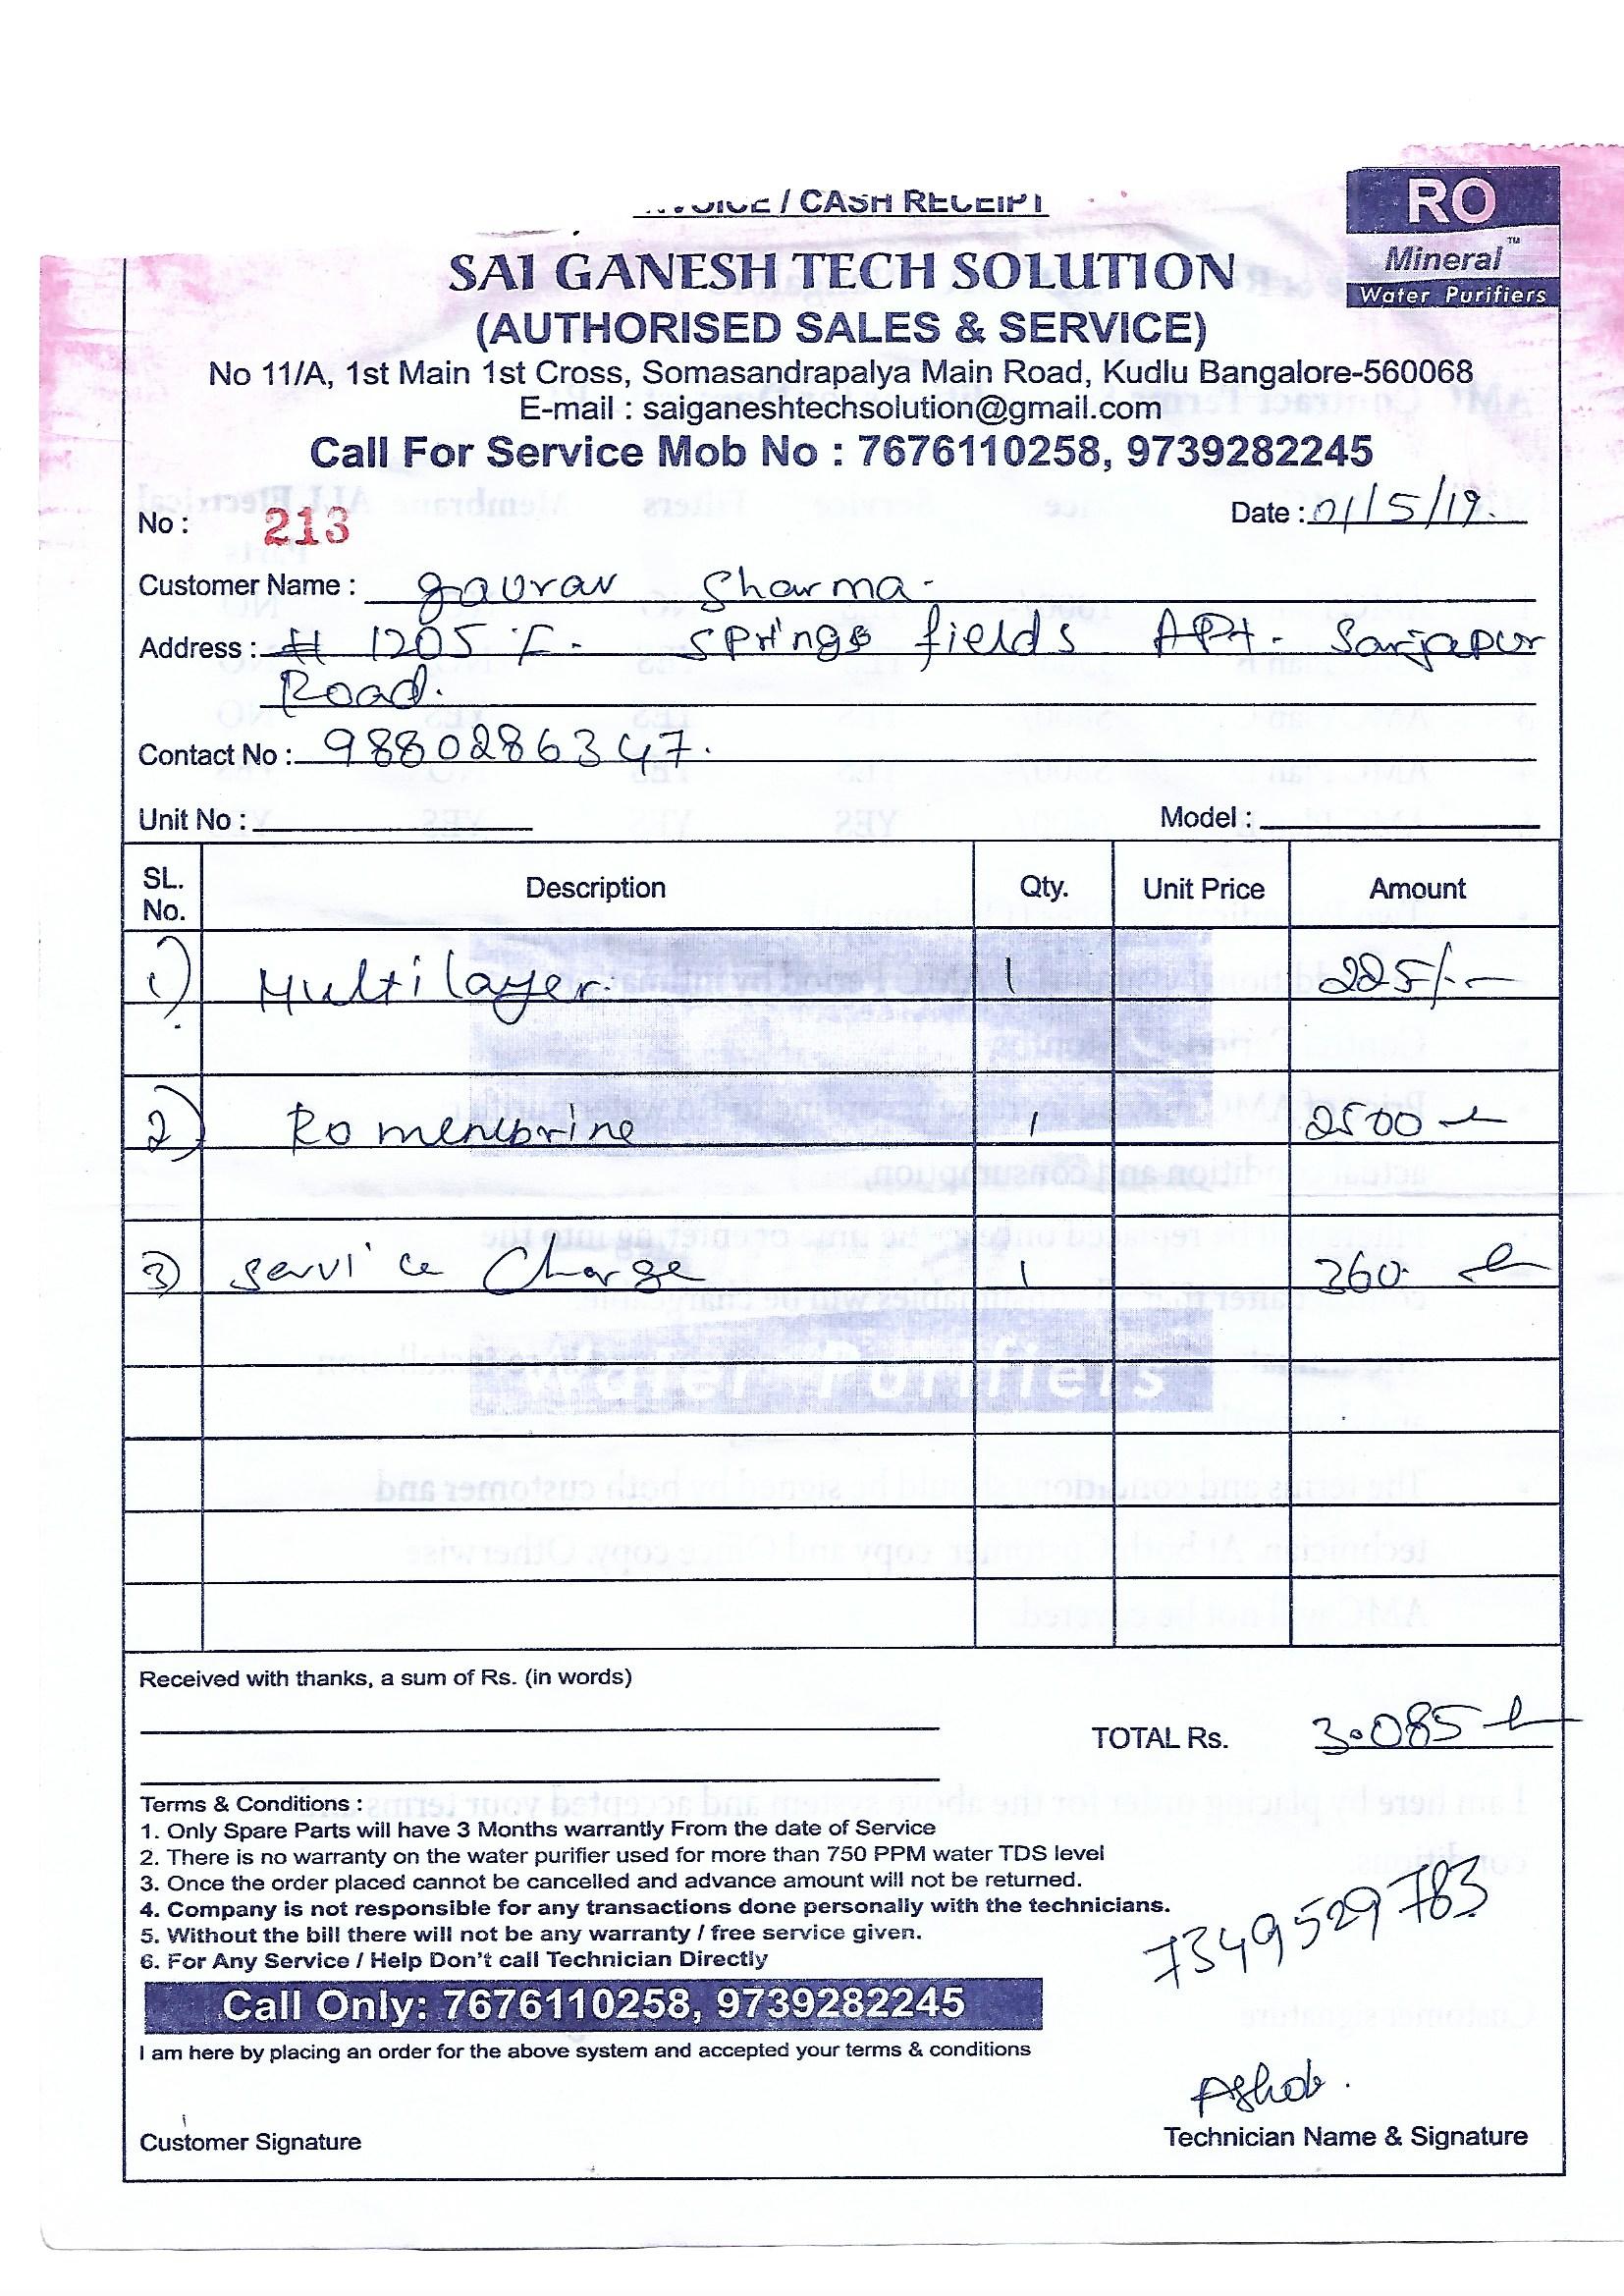 INVOICE / CASH RECEIPT
RO
Mineral™
Water Purifiers
SAI GANESH TECH SOLUTION
(AUTHORISED SALES & SERVICE)
No 11/A, 1st Main 1st Cross, Somasandrapalya Main Road, Kudlu Bangalore-560068
E-mail : saiganeshtechsolution@gmail.com
Call For Service Mob No : 7676110258, 9739282245
No : 213 Date : 01/5/19.
Customer Name : gaurav Sharma.
Address : # 1205 springs fields APt. Sarjapur
Road.
Contact No : 9880286347.
Unit No : Model :
SL. No. Description Qty. Unit Price Amount
1) Multilayer. 1 225/-
2) Ro memebrine 1 2500
3) Service Charge 1 360
Water Purifiers
Received with thanks, a sum of Rs. (in words)
TOTAL Rs. 3.085
Terms & Conditions :
1. Only Spare Parts will have 3 Months warrantly From the date of Service
2. There is no warranty on the water purifier used for more than 750 PPM water TDS level
3. Once the order placed cannot be cancelled and advance amount will not be returned.
4. Company is not responsible for any transactions done personally with the technicians.
5. Without the bill there will not be any warranty / free service given.
6. For Any Service / Help Don't call Technician Directly
7349529783
Call Only: 7676110258, 9739282245
I am here by placing an order for the above system and accepted your terms & conditions
Customer Signature Technician Name & Signature